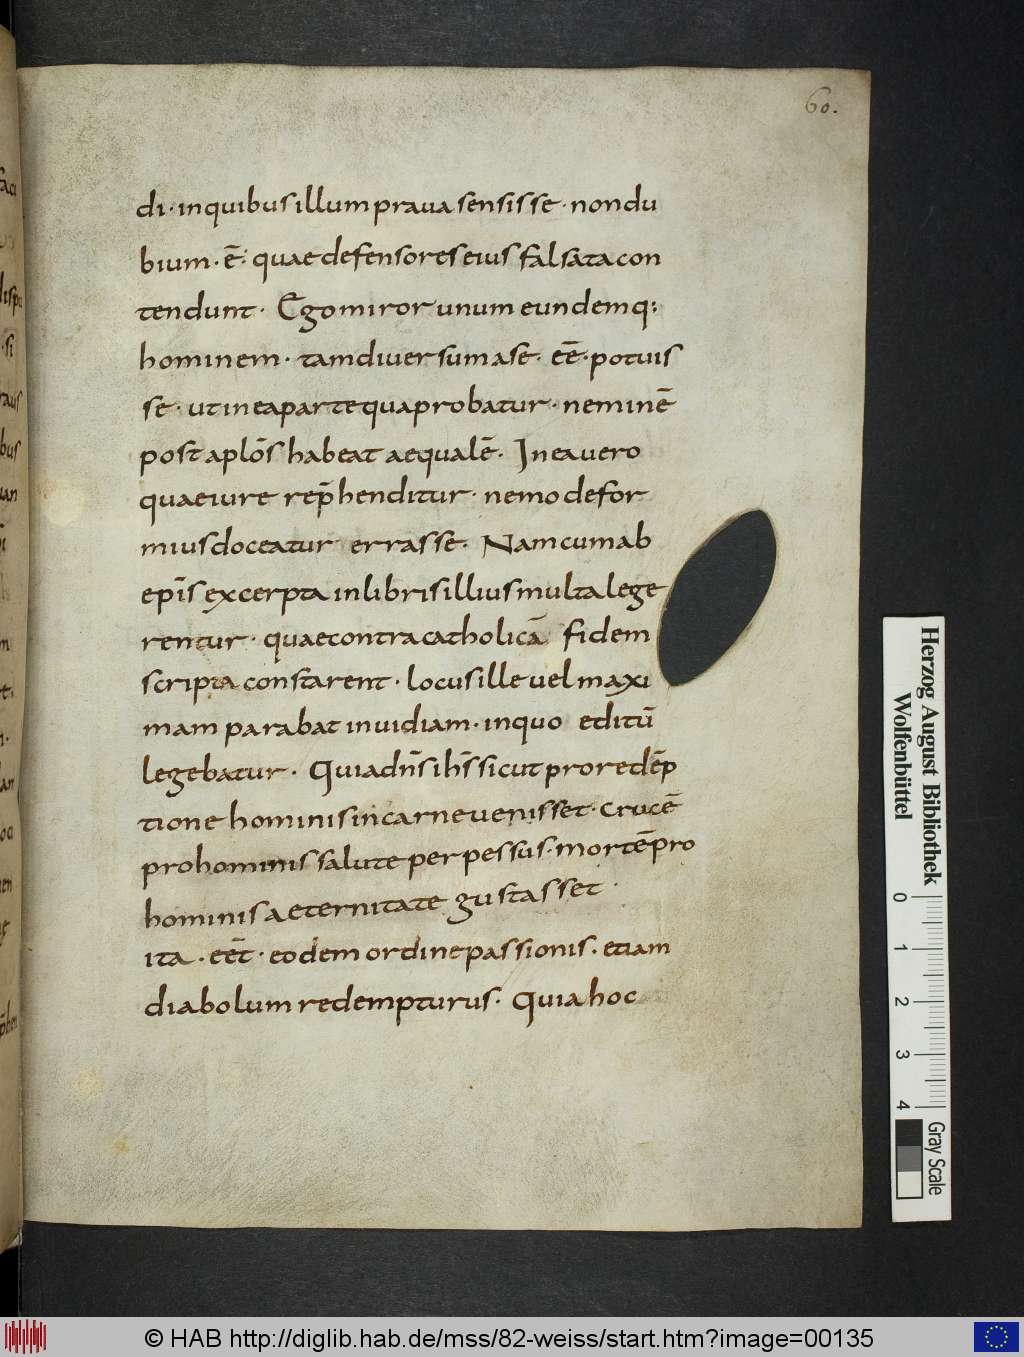 60.
di · inquibus illum praua sensisse · non du
bium · ē · quae defensores eius falsata con
tendunt · Ego miror unum eundemq:
hominem · tam diuersum a se · eē · potuis
se · ut in ea parte qua probatur · neminē
post aplōs habeat aequalē · In ea uero
quae iure rep̄henditur · nemo defor
mius doceatur errasse · Nam cum ab
epīs excerpta in libris illius multa lege
rentur · quae contra catholicā fidem
scripta constarent · locus ille uel maxi
mam parabat inuidiam · in quo editū
legebatur · Quia dn̄s ih̄s sicut pro redēp
tione hominis in carne uenisset · crucē
pro hominis salute perpessus · mortē pro
hominis aeternitate gustasset ·
ita · eēt · eodem ordine passionis · etiam
diabolum redempturus · Quia hoc
Herzog August Bibliothek
Wolfenbüttel
0 1 2 3 4
Gray Scale
© HAB http://diglib.hab.de/mss/82-weiss/start.htm?image=00135